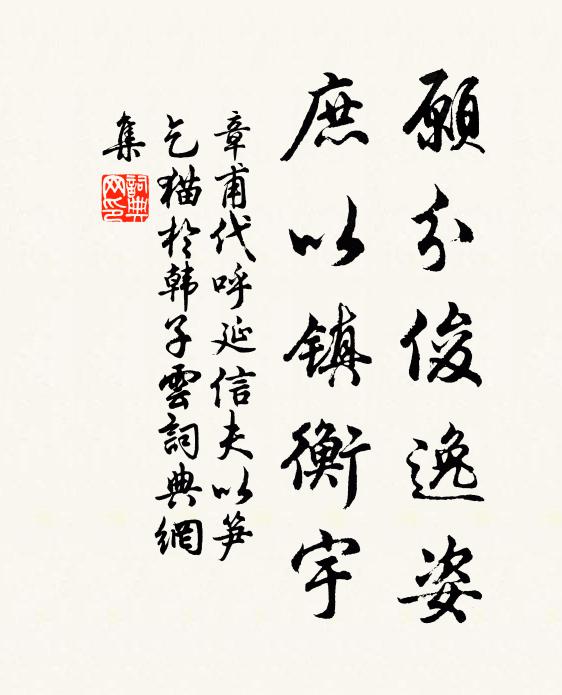 願分俊逸姿
庶以鎮衡宇
章甫代呼延信夫以笋
乞猫於韩子雲詞典網
集
詞典
网印